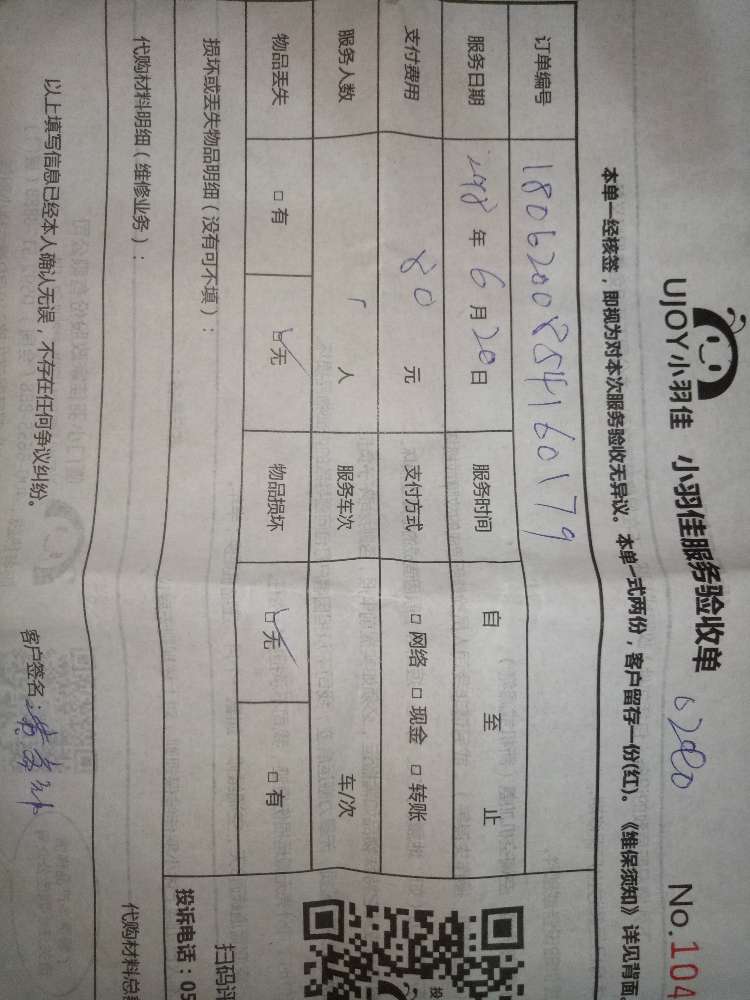 UJOY小羽佳 小羽佳服务验收单 No.104
本单一经核签，即视为对本次服务验收无异议。本单一式两份，客户留存一份(红)。《维保须知》详见背面
订单编号 1806200854160179
服务日期 年 6 月 20 日 服务时间 自 至 止
支付费用 80 元 支付方式 □ 网络 □ 现金 □ 转账
服务人数 1 人 服务车次 车/次
物品丢失 □ 有 ☑ 无 物品损坏 ☑ 无 □ 有
损坏或丢失物品明细（没有可不填）：
扫码评
投诉电话：05
代购材料明细（维修业务）： 代购材料总
以上填写信息已经本人确认无误，不存在任何争议纠纷。 客户签名：